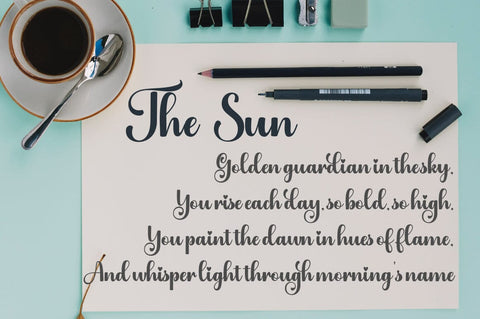 The Sun
Golden guardian in the sky.
You rise each day, so bold, so high.
You paint the dawn in hues of flame.
And whisper light through morning's name